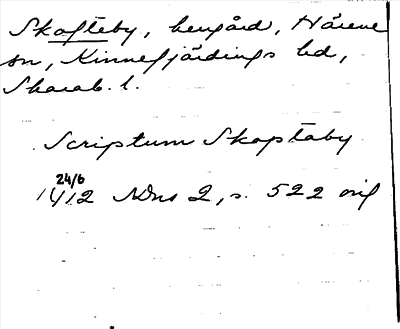 Skofteby, herrgård, Härene
sn, Kinnefjärdings hd,
Skarab. l.
Scriptum Skoptäby
24/6
1412 SDns 2, s. 522 orig